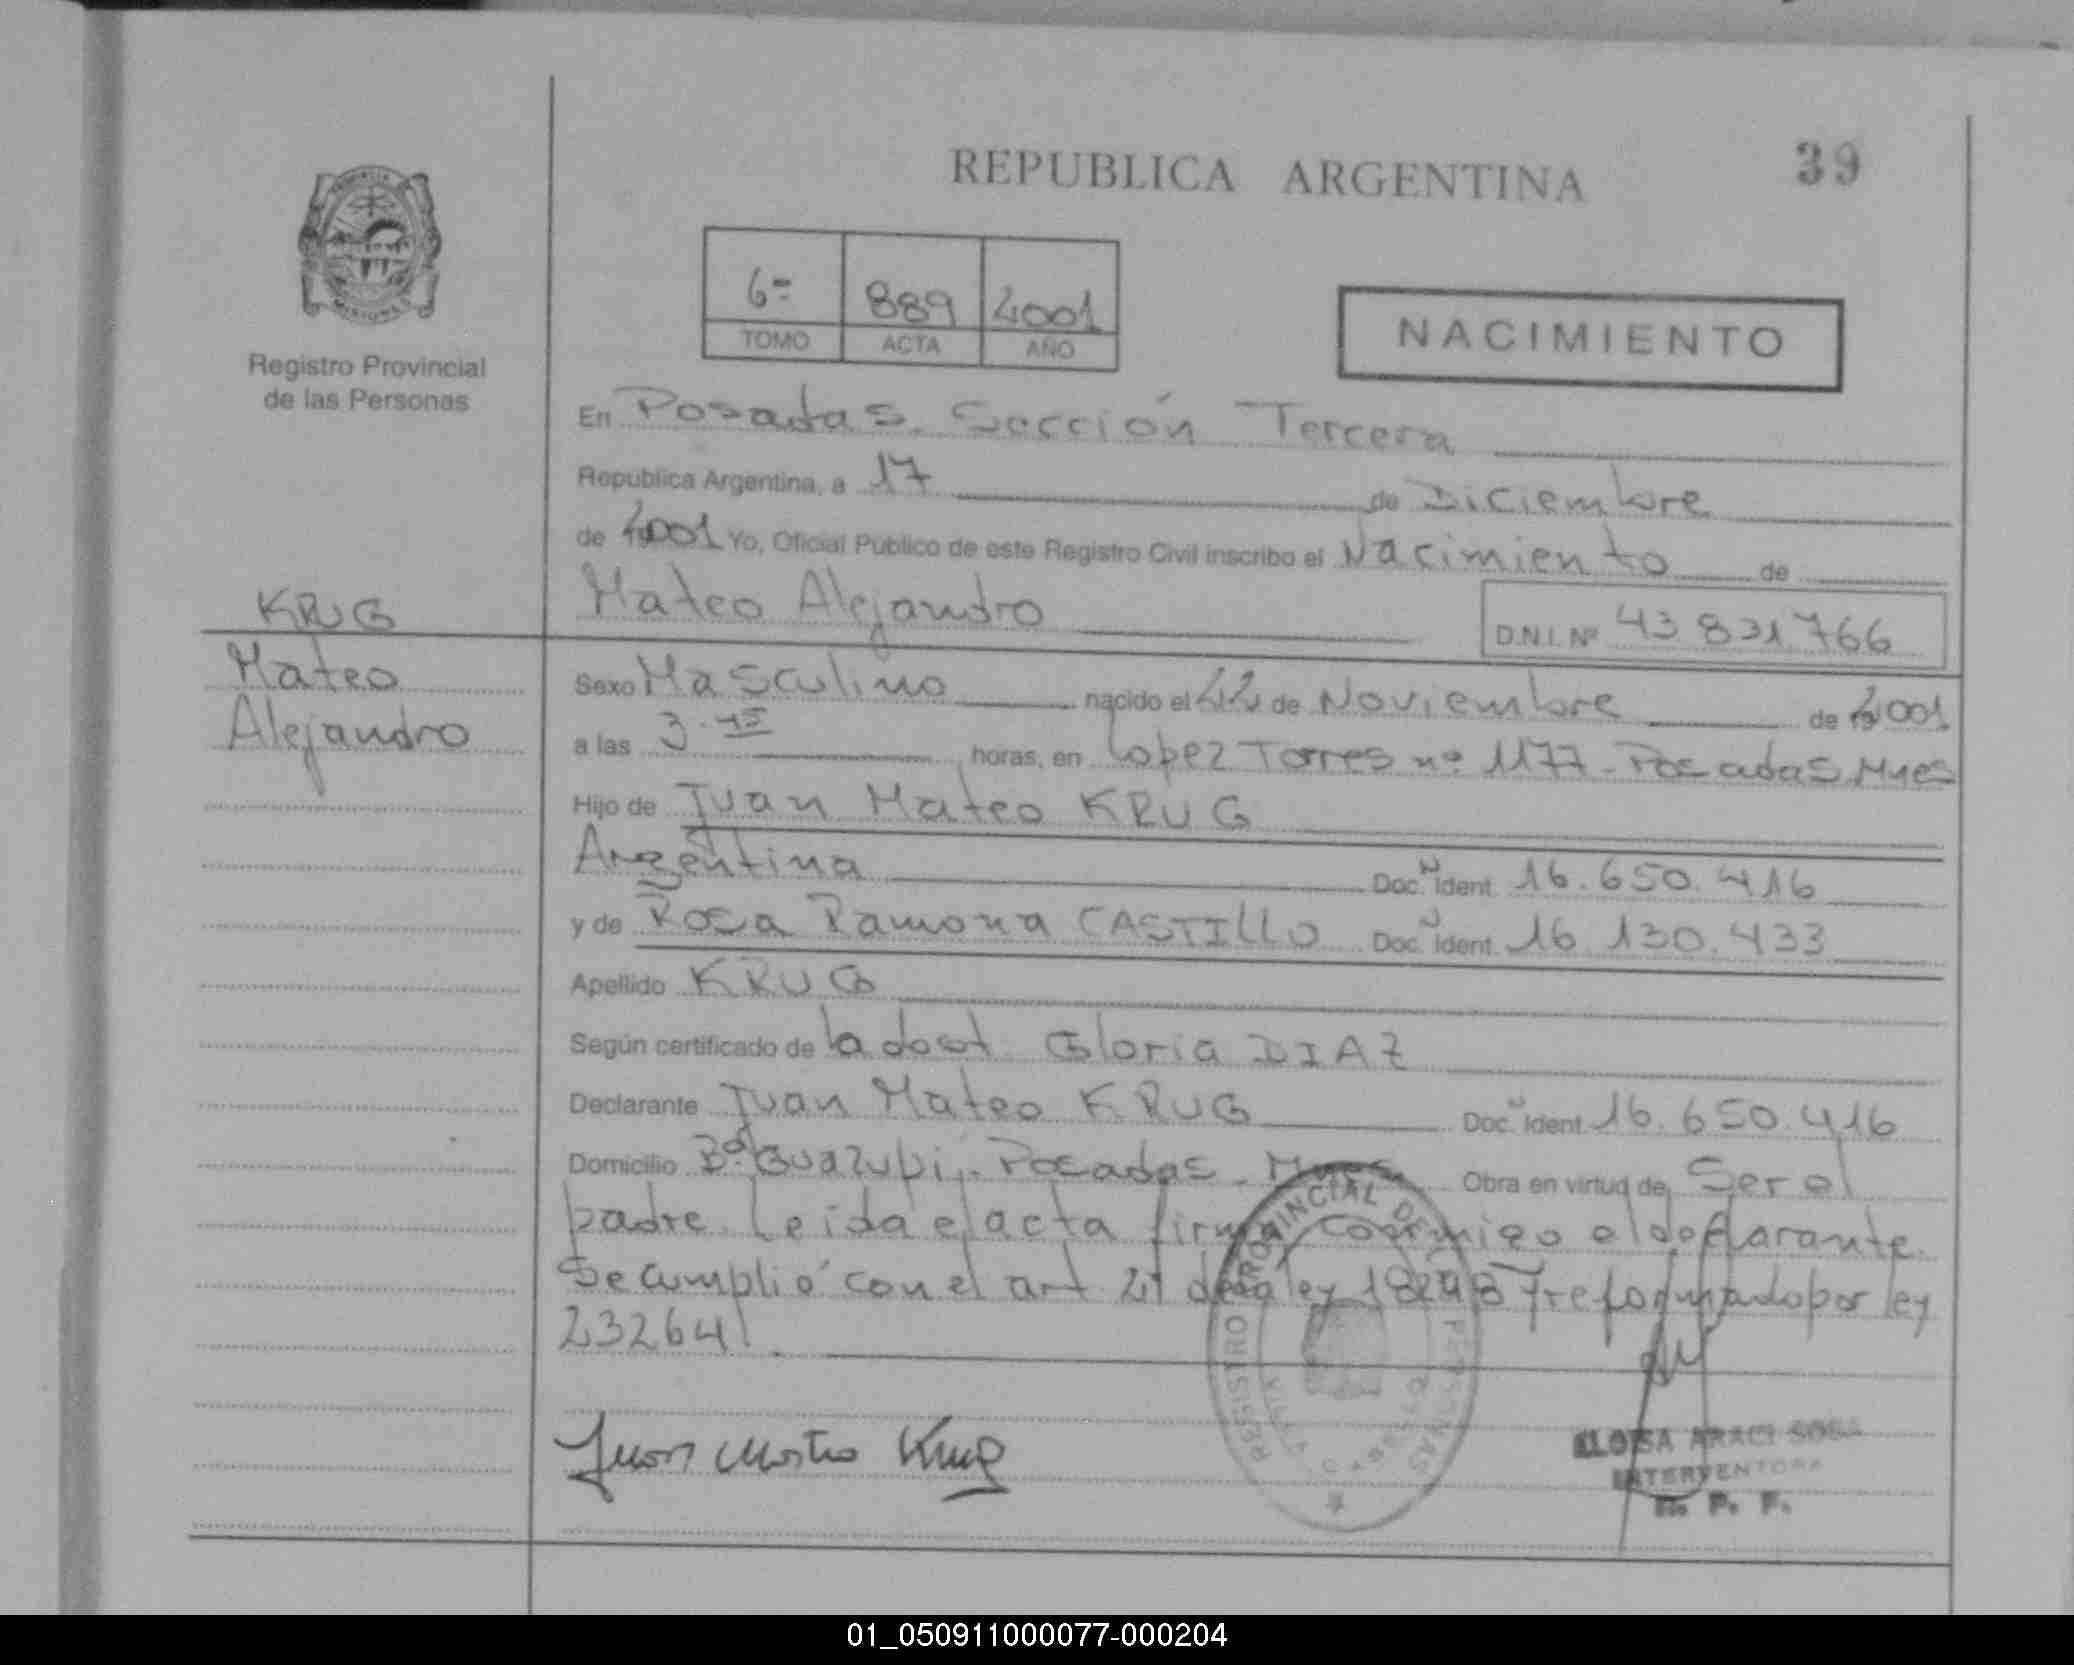 REPUBLICA ARGENTINA
39
PROVINCIA
MISIONES
Registro Provincial
de las Personas
6º 889 2001
TOMO ACTA AÑO
NACIMIENTO
En Posadas. Sección Tercera
Republica Argentina, a 17 de Diciembre
de 2001 Yo, Oficial Publico de este Registro Civil inscribo el Nacimiento de
KRUG
Mateo Alejandro
D.N.I. Nº 43 831 766
Mateo
Alejandro
Sexo Masculino nacido el 22 de Noviembre de 2001
a las 3.45 horas, en Lopez Torres nº 1177 - Posadas Mnes
Hijo de Juan Mateo KRUG
Argentina Doc. Ident. 16.650.416
y de Rosa Ramona CASTILLO Doc. Ident. 16 130.433
Apellido KRUG
Según certificado de la doct. Gloria DIAZ
Declarante Juan Mateo KRUG Doc. Ident. 16.650.416
Domicilio Bº Guazupi - Posadas - Mnes Obra en virtud de Ser el
padre. Leida el acta firma conmigo el declarante.
Se cumplió con el art 21 de la ley 18248 reformado por ley
23264.
Juan Mateo Krug
REGISTRO PROVINCIAL DE PERSONAS
ELOISA ARACI SOSA
INTERVENTORA
R. P. P.
01_050911000077-000204